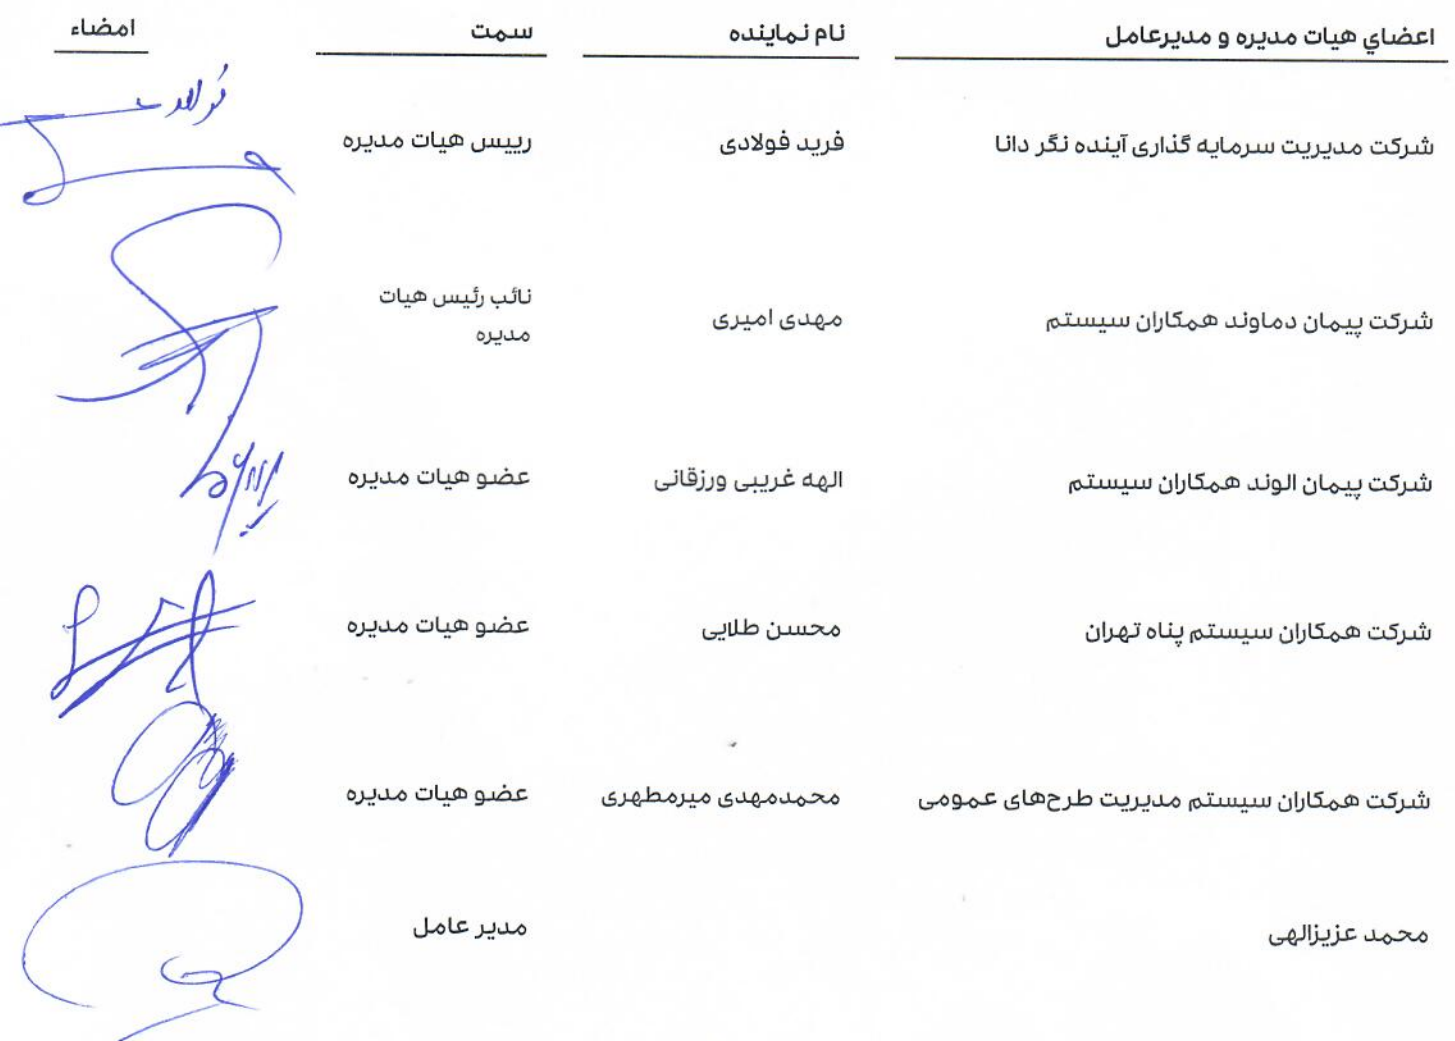 اعضاي هيات مديره و مديرعامل نام نماينده سمت امضاء
شرکت مدیریت سرمایه گذاری آینده نگر دانا فرید فولادی رییس هیات مدیره
شرکت پیمان دماوند همکاران سیستم مهدی امیری نائب رئیس هیات
مدیره
شرکت پیمان الوند همکاران سیستم الهه غریبی ورزقانی عضو هیات مدیره
شرکت همکاران سیستم پناه تهران محسن طلایی عضو هیات مدیره
شرکت همکاران سیستم مدیریت طرح‌های عمومی محمدمهدی میرمطهری عضو هیات مدیره
محمد عزیزالهی مدیر عامل